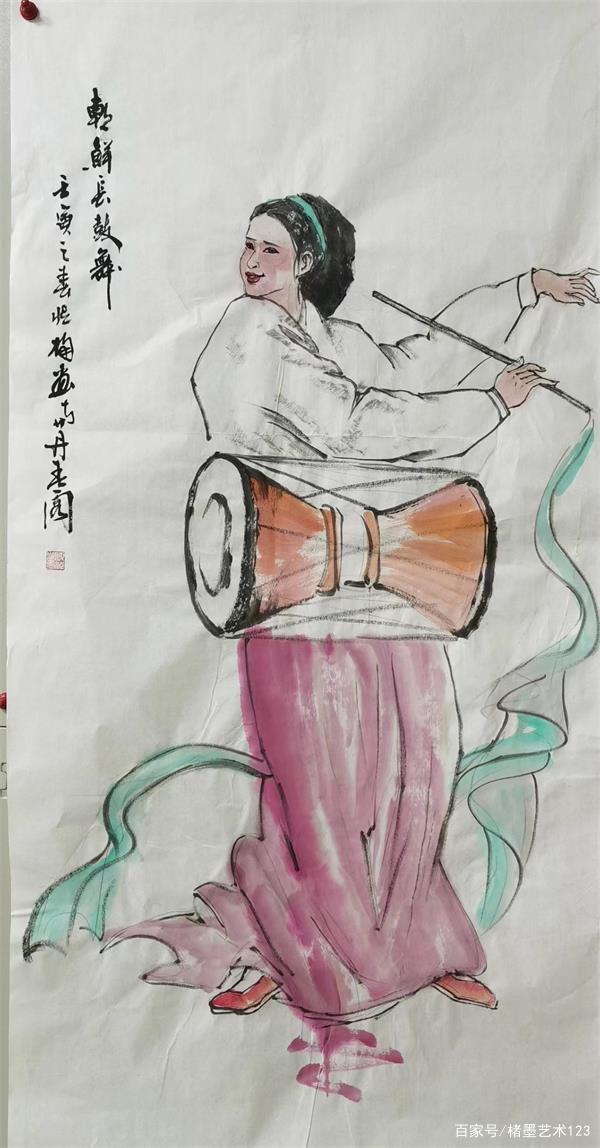 朝鲜长鼓舞
壬寅之春
画于丹春阁
百家号/楮墨艺术123